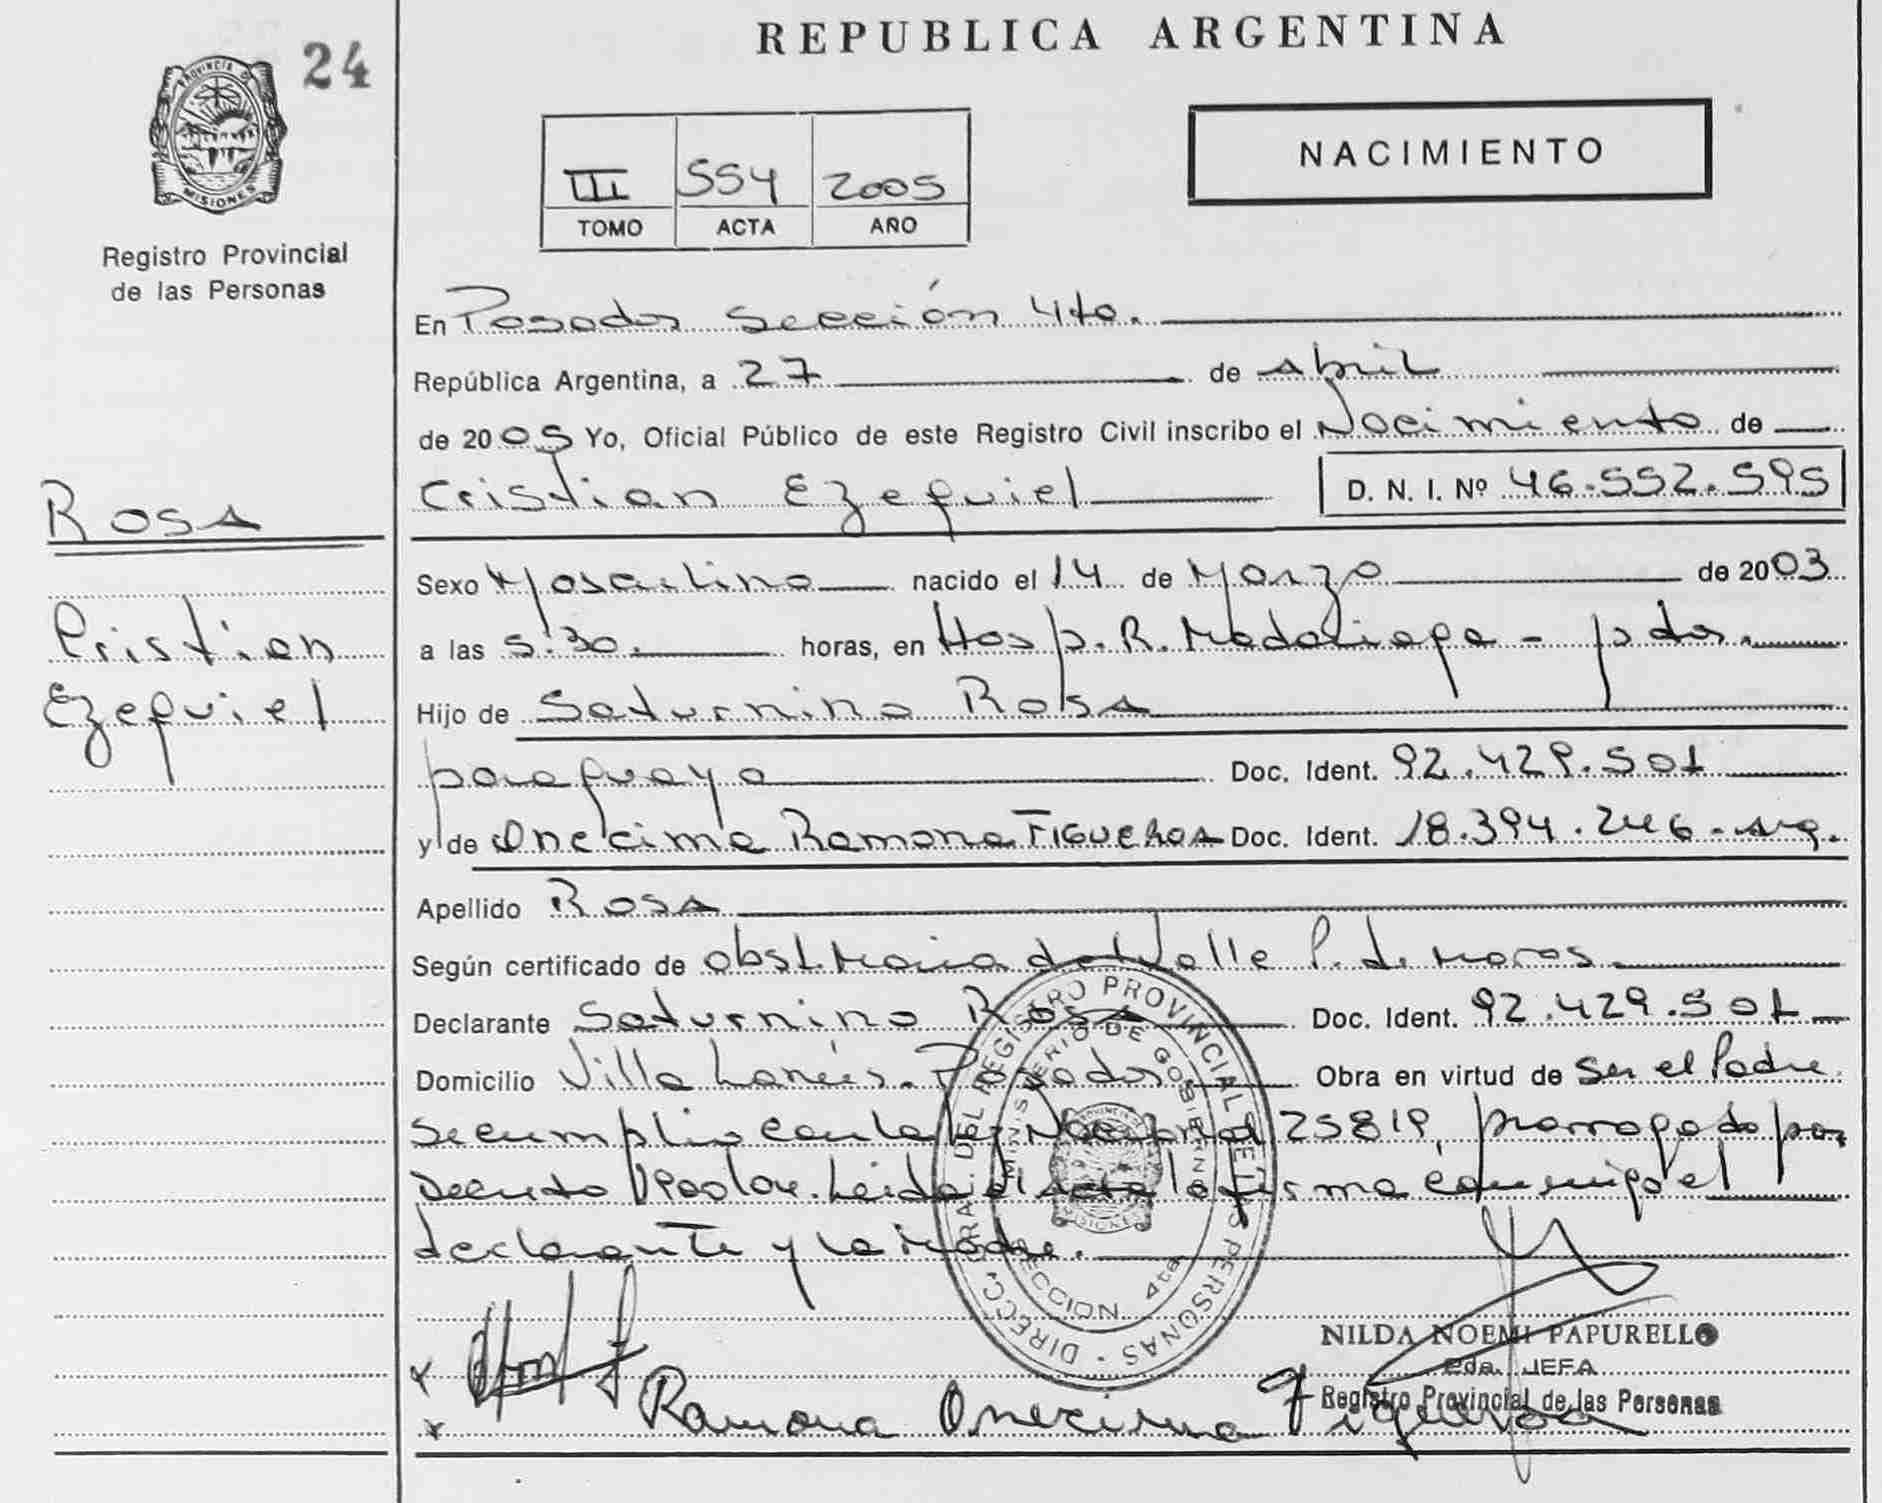 REPUBLICA ARGENTINA
24
PROVINCIA DE MISIONES
Registro Provincial
de las Personas
III 554 2005
TOMO ACTA AÑO
NACIMIENTO
En Posadas Sección 4ta.
República Argentina, a 27 de Abril
de 2005 Yo, Oficial Público de este Registro Civil inscribo el Nacimiento de
Cristian Ezequiel D. N. I. Nº 46.552.595
ROSA
Cristian
Ezequiel
Sexo Masculino nacido el 14 de Marzo de 2003
a las 5:30. horas, en Hosp. R. Madariaga - pdas.
Hijo de Saturnino Rosa
paraguaya Doc. Ident. 92.429.501
y de Onecima Ramona FIGUEROA Doc. Ident. 18.394.246 - arg.
Apellido ROSA
Según certificado de obst. Maria del Valle P. de Maros
Declarante Saturnino Rosa Doc. Ident. 92.429.501
Domicilio Villa Lanús. Posadas Obra en virtud de ser el Padre
Se cumplio con la ley Nacional 25819, prorrogado por
Decreto Leida el acta la firma conmigo el
declarante y la Madre.
DIRECC. GRAL. DEL REGISTRO PROVINCIAL DE LAS PERSONAS
MINISTERIO DE GOBIERNO
SECCION 4ta
NILDA NOEMI PAPURELLO
2da. JEFA
Registro Provincial de las Personas
Ramona Onecima Figueroa